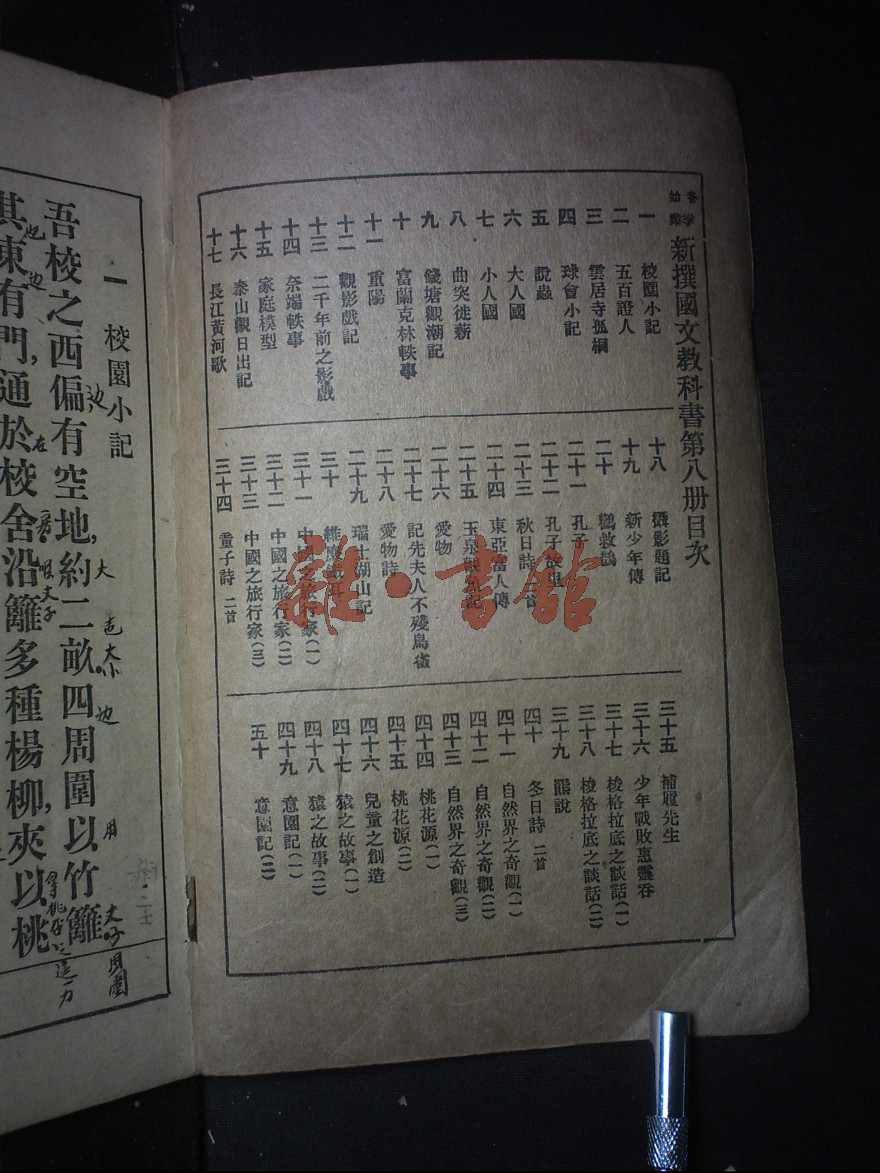 春季始業
新撰國文教科書第八册目次
一 校園小記
二 五百證人
三 雲居寺孤桐
四 球會小記
五 說蟲
六 大人國
七 小人國
八 曲突徙薪
九 錢塘觀潮記
十 富蘭克林軼事
十一 重陽
十二 觀影戲記
十三 二千年前之影戲
十四 奈端軼事
十五 家庭模型
十六 泰山觀日出記
十七 長江黃河歌
十八 攝影題記
十九 新少年傳
二十 鸛救鶴
二十一 孔子
二十二 孔子故里
二十三 秋日詩 二首
二十四 東亞富人傳
二十五 玉泉觀魚記
二十六 愛物
二十七 記先夫人不殘鳥雀
二十八 愛物詩
二十九 瑞士湖山記
三十
三十一 中國之旅行家(一)
三十二 中國之旅行家(二)
三十三 中國之旅行家(三)
三十四 童子詩 二首
三十五 補履先生
三十六 少年戰敗惠靈吞
三十七 梭格拉底之談話(一)
三十八 梭格拉底之談話(二)
三十九 羆說
四十 冬日詩 二首
四十一 自然界之奇觀(一)
四十二 自然界之奇觀(二)
四十三 自然界之奇觀(三)
四十四 桃花源(一)
四十五 桃花源(二)
四十六 兒童之創造
四十七 猿之故事(一)
四十八 猿之故事(二)
四十九 意園記(一)
五十 意園記(二)
雜·書館
一 校園小記
吾校之西偏有空地,約二畝四周圍以竹籬
其東有門,通於校舍沿籬多種楊柳,夾以桃